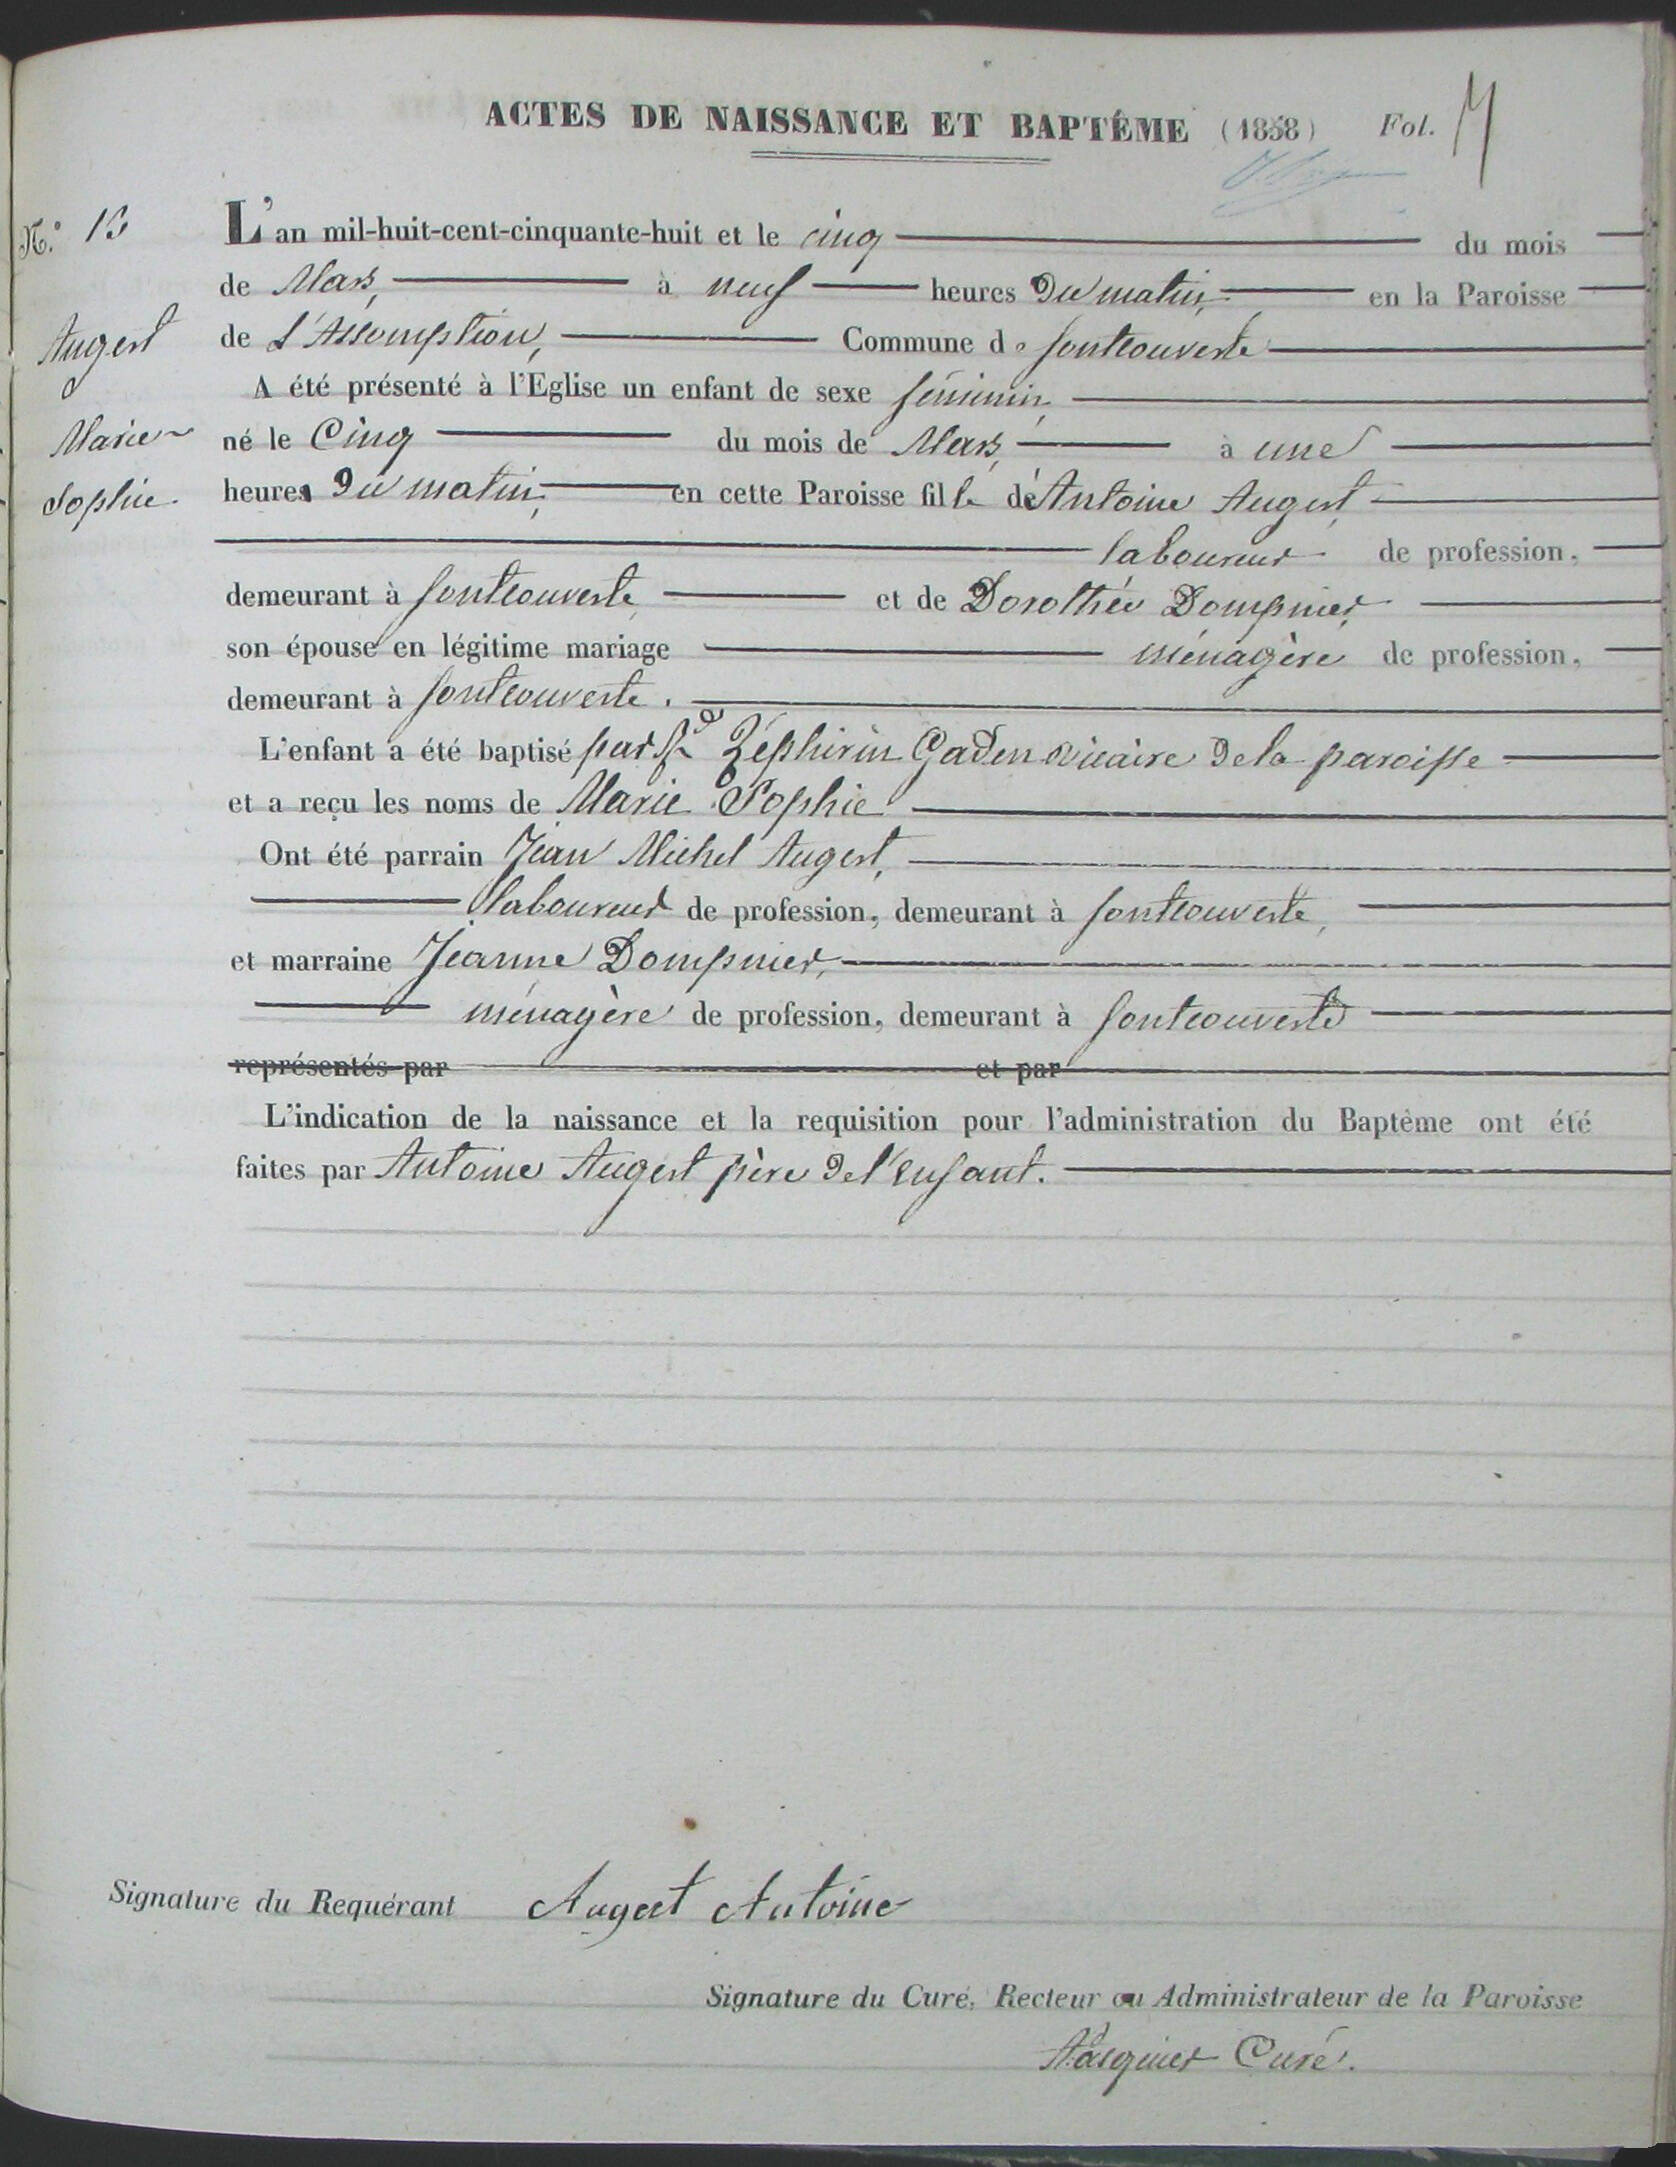 ACTES DE NAISSANCE ET BAPTÊME (1858) Fol.
N.° 13
L'an mil-huit-cent-cinquante-huit et le cinq du mois
de Mars, à neuf heures Du matin, en la Paroisse
Augert
de L'Assomption, Commune de fontcouverte
A été présenté à l'Eglise un enfant de sexe féminin,
Marie
né le Cinq du mois de Mars, à une
Sophie
heures Du matin, en cette Paroisse fille de Antoine Augert,
laboureur de profession,
demeurant à fontcouverte et de Dorothée Dompnier,
son épouse en légitime mariage ménagère de profession,
demeurant à fontcouverte.
L'enfant a été baptisé par Rd Zéphirin Gaden vicaire De la paroisse
et a reçu les noms de Marie Sophie
Ont été parrain Jean Michel Augert,
laboureur de profession, demeurant à fontcouverte,
et marraine Jeanne Dompnier,
ménagère de profession, demeurant à fontcouverte
représentés par et par
L'indication de la naissance et la requisition pour l'administration du Baptême ont été
faites par Antoine Augert père De l'enfant.
Signature du Requérant Augert Antoine
Signature du Curé, Recteur ou Administrateur de la Paroisse
Curé.